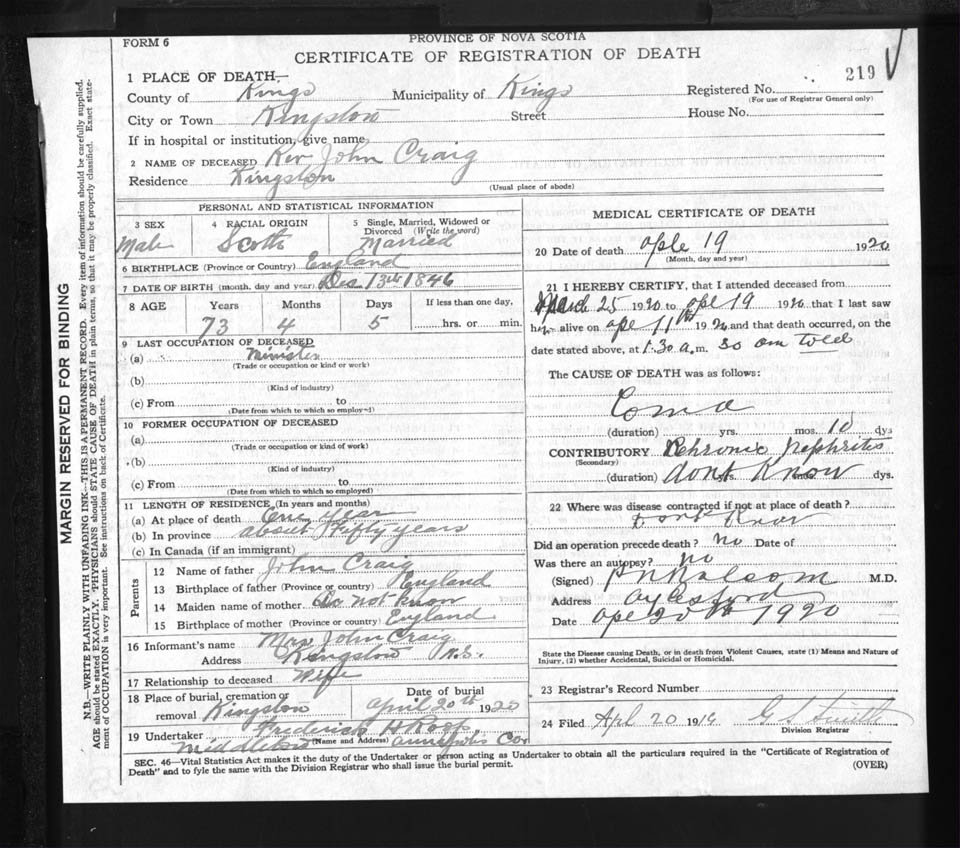 FORM 6
PROVINCE OF NOVA SCOTIA
CERTIFICATE OF REGISTRATION OF DEATH
219
1 PLACE OF DEATH,—
County of Kings Municipality of Kings Registered No.
(For use of Registrar General only)
City or Town Kingston Street House No.
If in hospital or institution, give name
2 NAME OF DECEASED Rev John Craig
Residence Kingston
(Usual place of abode)
PERSONAL AND STATISTICAL INFORMATION
3 SEX 4 RACIAL ORIGIN 5 Single, Married, Widowed or
Divorced (Write the word)
Male Scotch Married
6 BIRTHPLACE (Province or Country) England
7 DATE OF BIRTH (month, day and year) Dec 13th 1846
8 AGE Years Months Days If less than one day,
73 4 5 hrs. or min.
9 LAST OCCUPATION OF DECEASED
(a) Minister
(Trade or occupation or kind or work)
(b)
(Kind of industry)
(c) From to
(Date from which to which so employed)
10 FORMER OCCUPATION OF DECEASED
(a)
(Trade or occupation or kind of work)
(b)
(Kind of industry)
(c) From to
(Date from which to which so employed)
11 LENGTH OF RESIDENCE (In years and months)
(a) At place of death One year
(b) In province about Fifty years
(c) In Canada (if an immigrant)
Parents
12 Name of father John Craig
13 Birthplace of father (Province or country) England
14 Maiden name of mother Do not know
15 Birthplace of mother (Province or country) England
16 Informant's name Mrs John Craig
Address Kingston N.S.
17 Relationship to deceased Wife
18 Place of burial, cremation or Date of burial
removal Kingston April 20th 1920
19 Undertaker Fredrick H Roop
(Name and Address)
Middleton Annapolis Co
MEDICAL CERTIFICATE OF DEATH
20 Date of death Aple 19 1920
(Month, day and year)
21 I HEREBY CERTIFY, that I attended deceased from
March 25 1920 to Aple 19 1920 that I last saw
h alive on Ape 11th 1920 and that death occurred, on the
date stated above, at 1.30 a.m. so am told
The CAUSE OF DEATH was as follows:
Coma
(duration) yrs. mos. 10 dys
CONTRIBUTORY Chronic Nephritis
(Secondary)
(duration) dont Know dys.
22 Where was disease contracted if not at place of death?
Dont Know
Did an operation precede death? no Date of
Was there an autopsy? no
(Signed) M.D.
Address Aylesford
Date Ape 20th 1920
State the Disease causing Death, or in death from Violent Causes, state (1) Means and Nature of
Injury, (2) whether Accidental, Suicidal or Homicidal.
23 Registrar's Record Number
24 Filed Apl 20 1916 G S Smith
Division Registrar
SEC. 46—Vital Statistics Act makes it the duty of the Undertaker or person acting as Undertaker to obtain all the particulars required in the "Certificate of Registration of
Death" and to fyle the same with the Division Registrar who shall issue the burial permit.
(OVER)
MARGIN RESERVED FOR BINDING
N.B.—WRITE PLAINLY WITH UNFADING INK—THIS IS A PERMANENT RECORD. Every item of information should be carefully supplied.
AGE should be stated EXACTLY. PHYSICIANS should STATE CAUSE OF DEATH in plain terms, so that it may be properly classified. Exact state-
ment of OCCUPATION is very important. See instructions on back of Certificate.